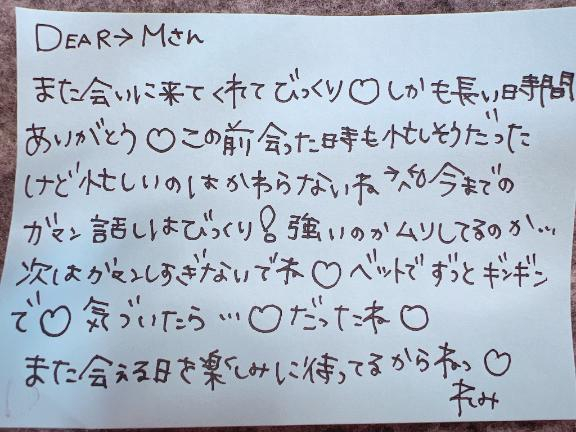 DEAR→Mさん
また会いに来てくれてびっくり♡しかも長い時間
ありがとう♡この前会った時も忙しそうだった
けど忙しいのはかわらないね 今までの
ガマン話しはびっくり!強いのかムリしてるのか…
次はガマンしすぎないでね♡ベットでずっとギンギン
で♡気づいたら…♡だったね♡
また会える日を楽しみに待ってるからねっ♡
れみ